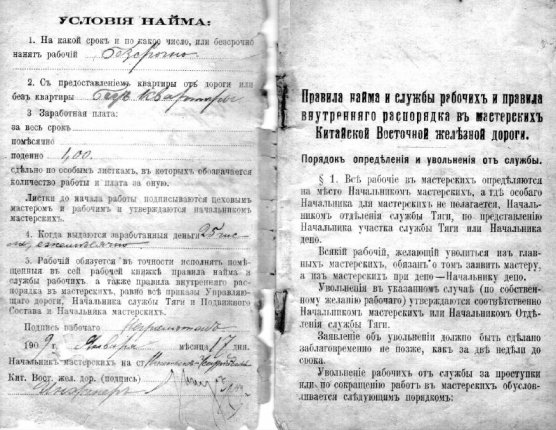 УСЛОВІЯ НАЙМА:
1. На какой срокъ и по какое число, или безсрочно
нанятъ рабочій Безсрочно
2. Съ предоставленіемъ квартиры отъ дороги или
безъ квартиры Безъ квартиры
3 Заработная плата:
за весь срокъ
помѣсячно
поденно 1,00.
сдѣльно по особымъ листкамъ, въ которыхъ обозначается
количество работы и плата за оную.
Листки до начала работы подписываются цеховымъ
мастеромъ и рабочимъ и утверждаются начальникомъ
мастерскихъ.
4. Когда выдаются заработанныя деньги 25 чис
ла, ежемѣсячно
5. Рабочій обязуется въ точности исполнять помѣ-
щенныя въ сей рабочей книжкѣ правила найма и
службы рабочихъ, а также правила внутренняго рас-
порядка въ мастерскихъ, равно всѣ приказы Управляю-
щаго дороги, Начальника службы Тяги и Подвижного
Состава и Начальника мастерскихъ.
Подпись рабочаго
1909 г. Января мѣсяца 17 дня.
Начальникъ мастерскихъ на ст.
Кит. Вост. жел. дор. (подпись)
Правила найма и службы рабочихъ и правила
внутренняго распорядка въ мастерскихъ
Китайской Восточной желѣзной дороги.
Порядокъ опредѣленія и увольненія отъ службы.
§ 1. Всѣ рабочіе въ мастерскихъ опредѣляются
на мѣсто Начальникомъ мастерскихъ, а гдѣ особаго
Начальника для мастерскихъ не полагается, Начальни-
комъ отдѣленія службы Тяги, по представленію
Начальника участка службы Тяги или Начальника
депо.
Всякій рабочій, желающій уволиться изъ глав-
ныхъ мастерскихъ, обязанъ о томъ заявить мастеру,
а изъ мастерскихъ при депо—Начальнику депо.
Увольненія въ указанномъ случаѣ (по собствен-
ному желанію рабочаго) утверждаются соотвѣтственно
Начальникомъ мастерскихъ или Начальникомъ Отдѣ-
ленія службы Тяги.
Заявленіе объ увольненіи должно быть сдѣлано
заблаговременно не позже, какъ за двѣ недѣли до
срока.
Увольненіе рабочихъ отъ службы за проступки
или по сокращенію работъ въ мастерскихъ обуслов-
ливается слѣдующимъ порядкомъ: